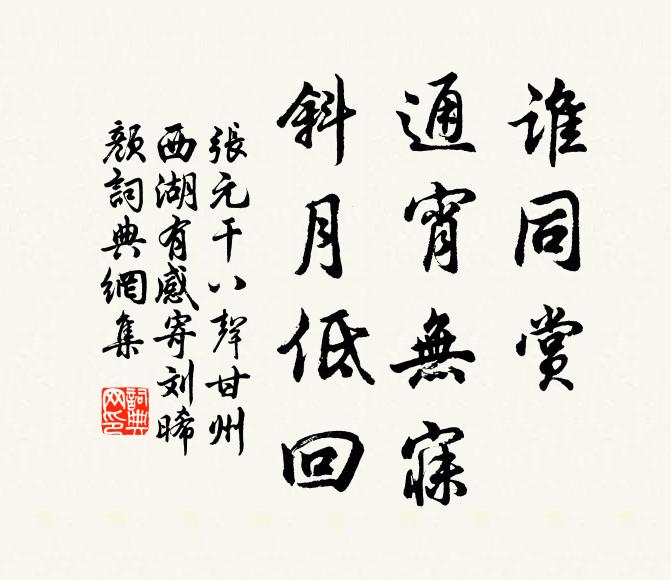 誰同賞
通宵無寐
斜月低回
張元干八聲甘州
西湖有感寄刘晞
顏詞典網集
詞典
网印